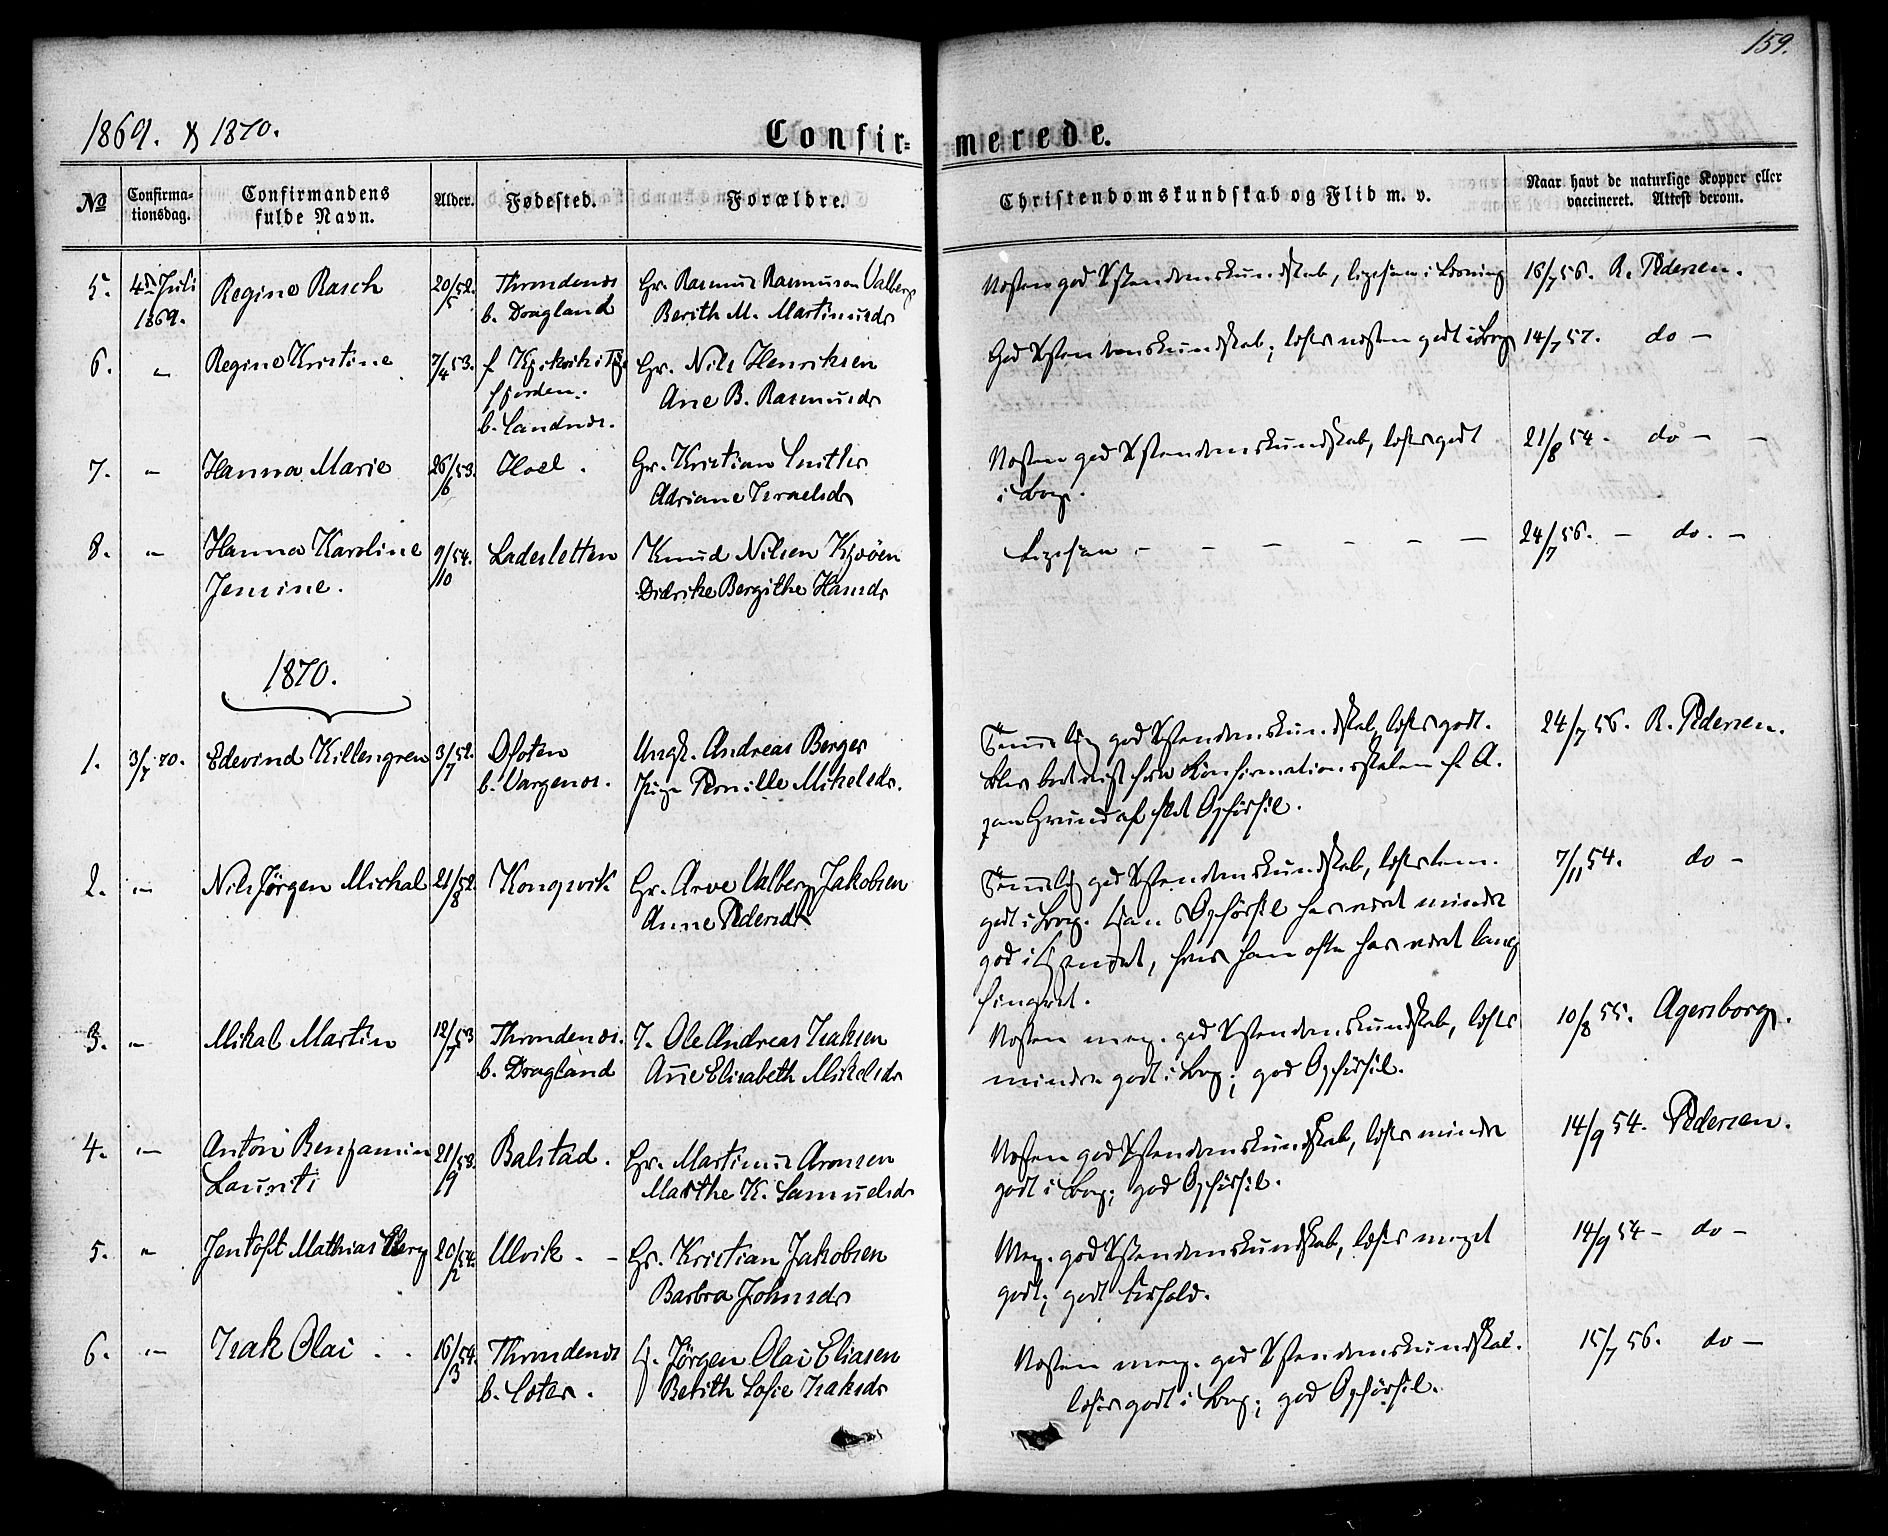 159.
1869. & 1870.
Confir-
merede.
No
Confirma-
tionsdag.
Confirmandens
fulde Navn.
Alder.
Fødested.
Forældre.
Christendomskundskab og Flid m. v.
Naar havt de naturlige Kopper eller
vaccineret. Attest derom.
5. 4de Juli 1869. Regine Rasch 20/5 52. Throndenæs
b. Dragland
Gr. Rasmus Rasmusen Valberg
Berith M. Martinusdr
Næsten god Xstendomskundskab, ligesaa i Læsning
16/7 56. R. Pedersen.
6. " Regine Kristine 7/4 53. f
fjorden.
b. Sandnæs.
Gr. Nils Henriksen
Ane B. Rasmusdr
God Xstendomskundskab; læser næsten godt i Bog
14/7 57. do —
7. " Hanna Marie 26/6 53. Hoel.
Gr. Kristian
Adriane Israelsdr
Næsten god Xstendomskundskab, læser godt
i Bog.
21/8 54. do — —
8. " Hanna Karoline
Jemine.
9/10 54. Ladesletten
Knud Nilsen Kjøöen
Didrike Bergithe Hansdr
Ligesaa — — — — — —
24/7 56. — do. —
1870.
1. 3/7 70. Edevind Killengren 3/7 52. Ofoten
b. Vargenæs.
Ungk. Andreas Berger
Pige Pernille Mikelsdr.
Temmelig god Xstendomskundskab, læser godt.
Blev bortvist fra Konfirmationsskolen f. A.
paa Grund af slet Opførsel.
24/7 56. R. Pedersen.
2. " Nils Jørgen Michal 21/8 52. Kongsvik
Gr. Arve Valberg Jakobsen
Anne Pedersdr
Temmelig god Xstendomskundskab, læser tem.
godt i Bog. Hans Opførsel har været mindre
god i Hjemmet, hvor han ofte har været lang-
fingret.
7/11 54. do —
3. " Mikal Martin 12/7 53 Throndenæs.
b. Dragland
I. Ole Andreas Isaksen
Ane Elisabeth Mikelsdr
Næsten meg. god Xstendomskundskab, læser
mindre godt i Bog; god Opførsel.
10/8 55. Agersborg.
4. " Anton Benjamin
Lauriti
21/9 53. Balstad.
Gr. Martinus Aronsen
Marthe K. Samuelsdr
Næsten god Xstendomskundskab, læser mindre
godt i Bog; god Opførsel.
14/9 54. Pedersen.
5. " Jentoft Mathias Elberg 20/2 54. Ulvik. —
Gr. Kristian Jakobsen
Barbra Johnsdr
Meg. god Xstendomskundskab, læser meget
godt; godt Forhold.
14/9 54 — do —
6. " Isak Olai . . 16/3 54. Throndenæs
b. Søter.
G. Jørgen Olai Eliasen
Berith Sofie Isaksdr
Næsten meg. god Xstendomskundskab.
læser godt i Bog; god Opførsel.
15/7 56. do —